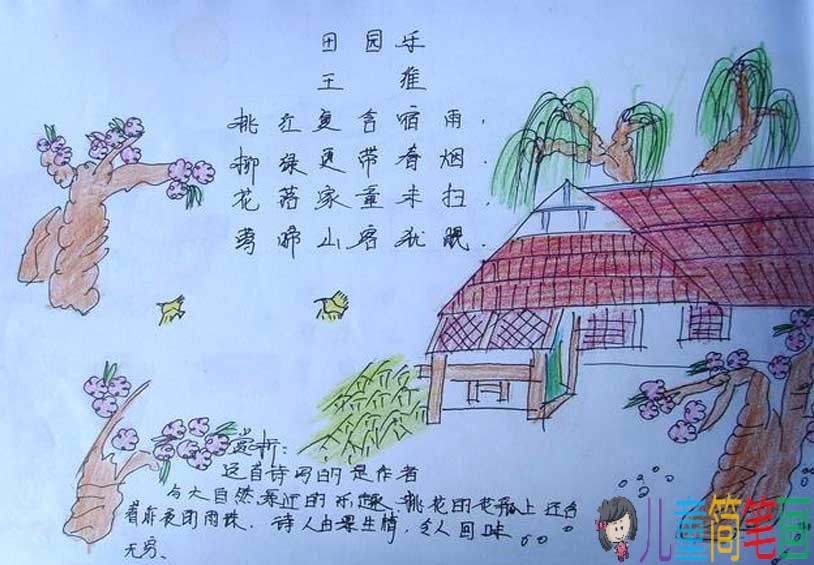 田园乐
王维
桃红复含宿雨，
柳绿更带春烟.
花落家童未扫，
莺啼山客犹眠.
赏析：
这首诗写的是作者
与大自然亲近的乐趣,桃花的花瓣上还含
着昨夜的雨珠.诗人由景生情,令人回味
无穷、
儿童简笔画